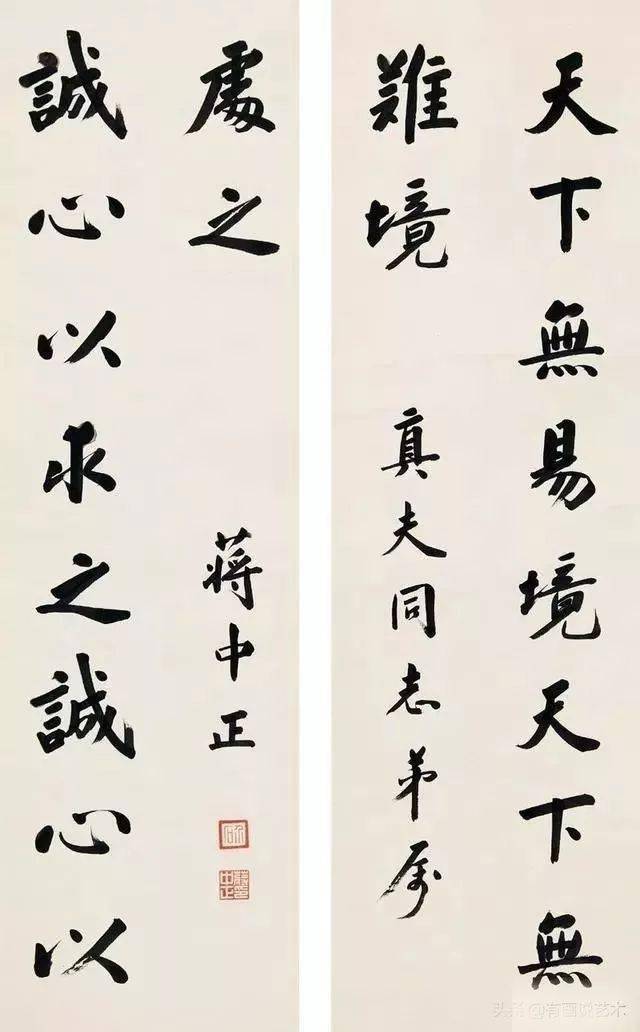 天下無易境天下無
難境
真夫同志弟属
誠心以求之誠心以
處之
蔣中正
介石
蔣中正印
头条 @有画说艺术